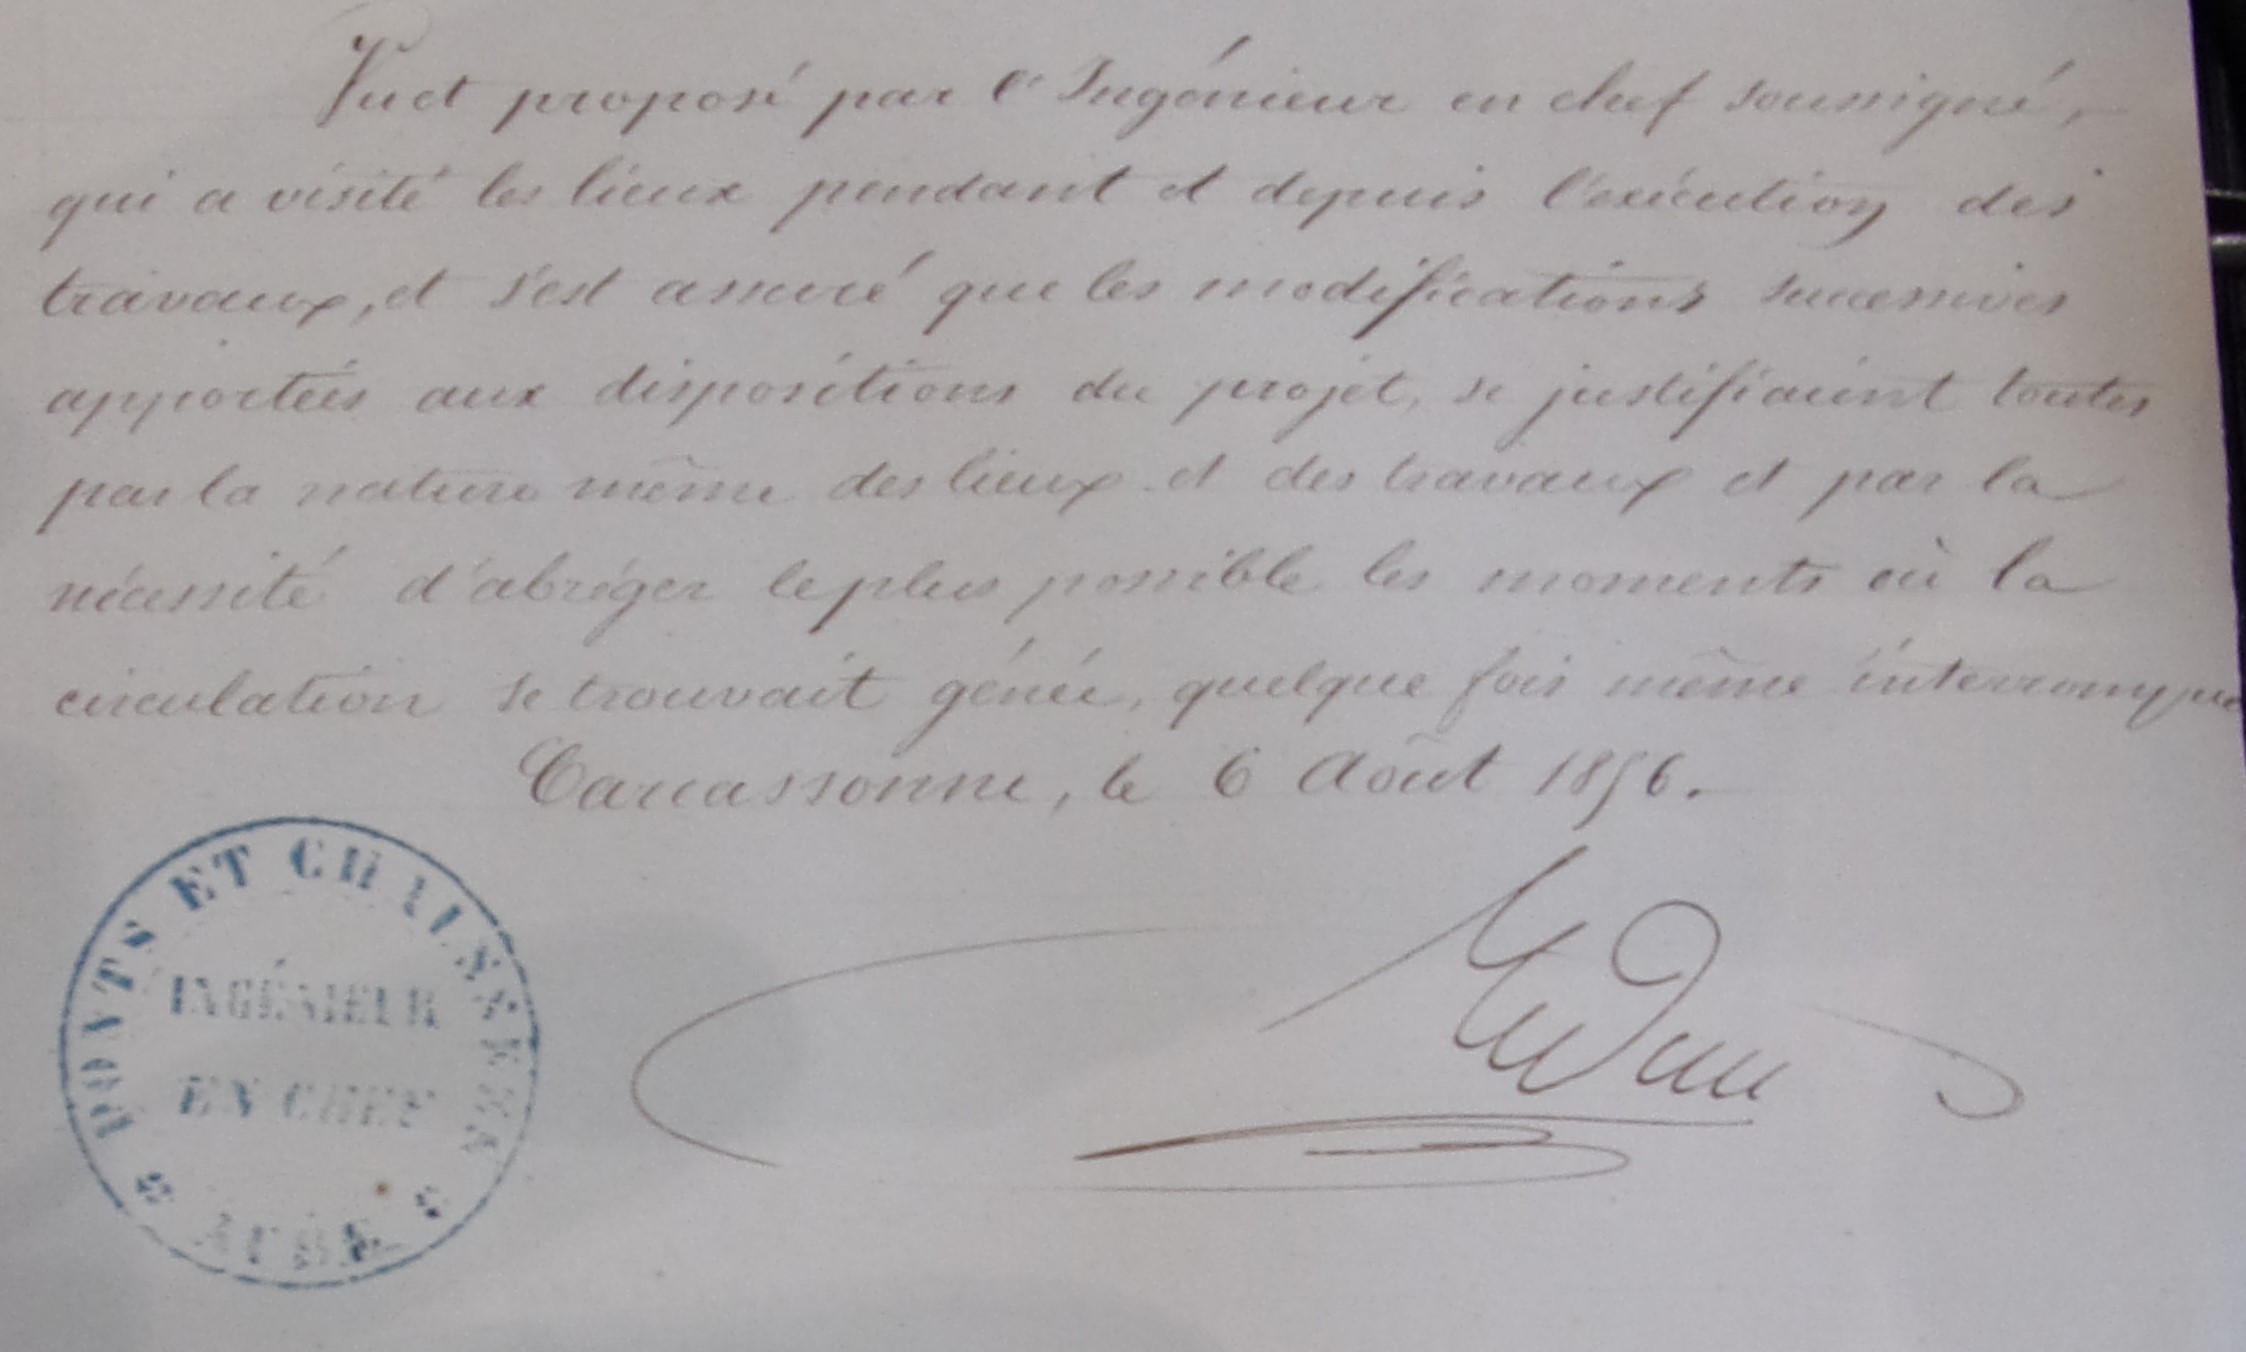 Vu et proposé par l'Ingénieur en chef soussigné,
qui a visité les lieux pendant et depuis l'exécution des
travaux, et s'est assuré que les modifications successives
apportées aux dispositions du projet, se justifiaient toutes
par la nature même des lieux et des travaux et par la
nécessité d'abréger le plus possible les moments où la
circulation se trouvait gênée, quelque fois même interrompue
Carcassonne, le 6 Août 1856.
PONTS ET CHAUSSÉES
INGÉNIEUR
EN CHEF
AUDE